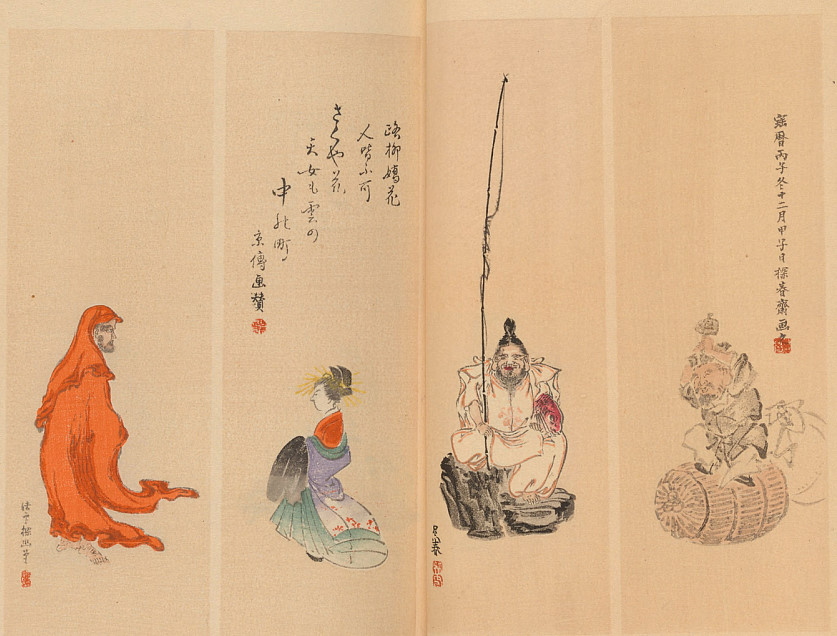 寳暦丙子冬十二月甲子日探春齋画
呉春
路柳墻花
人皆
さくや花
天女も雲の
中の町
京傳画賛
探幽筆